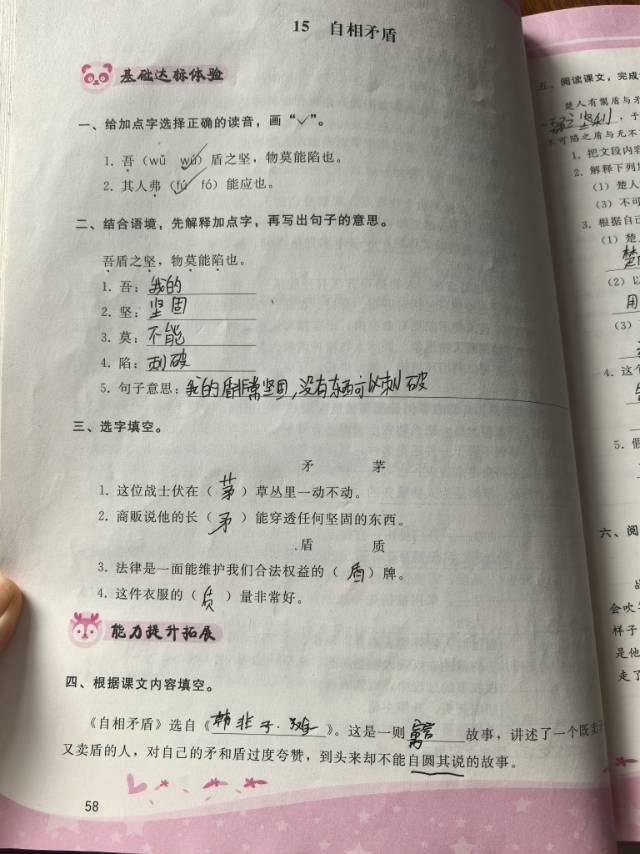 15 自相矛盾
基础达标体验
一、给加点字选择正确的读音，画“√”。
1. 吾（wǔ wú）盾之坚，物莫能陷也。
2. 其人弗（fú fó）能应也。
二、结合语境，先解释加点字，再写出句子的意思。
吾盾之坚，物莫能陷也。
1. 吾：我的
2. 坚：坚固
3. 莫：不能
4. 陷：刺破
5. 句子意思：我的盾非常坚固，没有东西可以刺破
三、选字填空。
矛 茅
1. 这位战士伏在（茅）草丛里一动不动。
2. 商贩说他的长（矛）能穿透任何坚固的东西。
盾 质
3. 法律是一面能维护我们合法权益的（盾）牌。
4. 这件衣服的（质）量非常好。
能力提升拓展
四、根据课文内容填空。
《自相矛盾》选自《韩非子·难一》。这是一则寓言故事，讲述了一个既卖
又卖盾的人，对自己的矛和盾过度夸赞，到头来却不能自圆其说的故事。
58
五、阅读课文，完成
楚人有鬻盾与矛
坚利
不可陷之盾与无不
1. 把文段内容
2. 解释下列
（1）楚人
（3）不可
3. 根据自己
（1）楚
楚
（2）以
用
（3）
4. 这个
5. 假
六、阅
会吹
样子
是他
走了